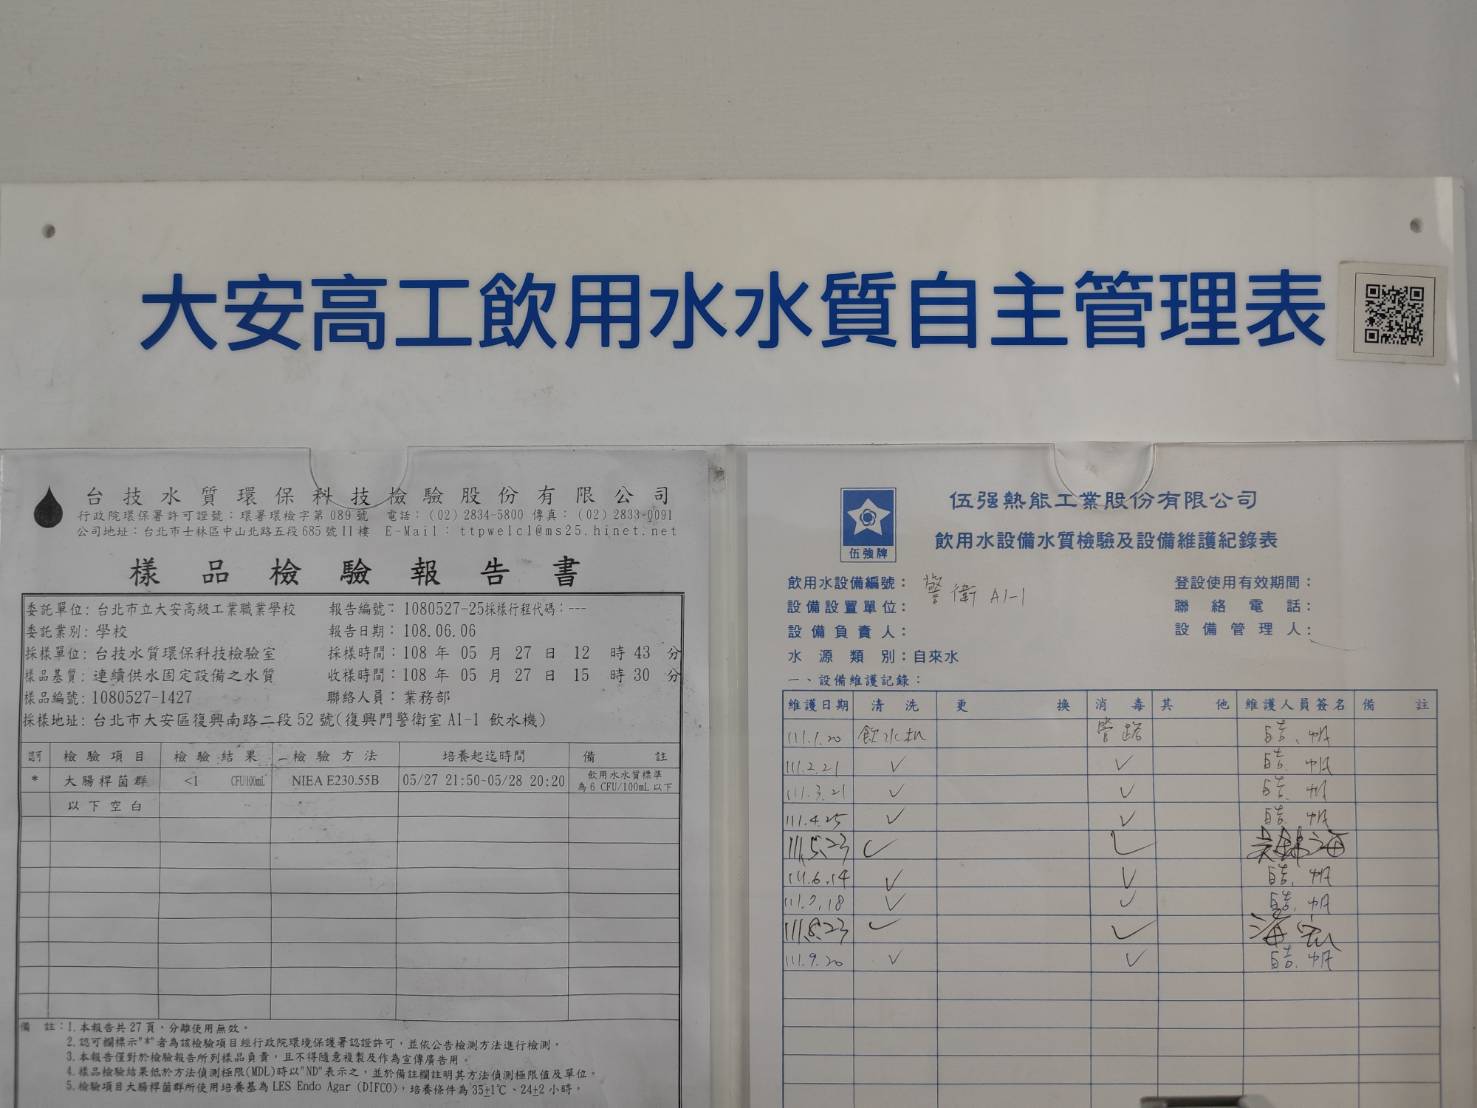 大安高工飲用水水質自主管理表
台技水質環保科技檢驗股份有限公司
行政院環保署許可證號：環署環檢字第 089 號 電話：(02) 2834-5800 傳真：(02) 2833-0091
公司地址：台北市士林區中山北路五段 685 號 11 樓 E-Mail： ttpwelcl@ms25.hinet.net
樣品檢驗報告書
委託單位: 台北市立大安高級工業職業學校 報告編號：1080527-25採樣行程代碼：---
委託業別: 學校 報告日期：108.06.06
採樣單位: 台技水質環保科技檢驗室 採樣時間：108 年 05 月 27 日 12 時 43 分
樣品基質: 連續供水固定設備之水質 收樣時間：108 年 05 月 27 日 15 時 30 分
樣品編號: 1080527-1427 聯絡人員：業務部
採樣地址: 台北市大安區復興南路二段 52 號(復興門警衛室 A1-1 飲水機)
認可 檢驗項目 檢驗結果 檢驗方法 培養起迄時間 備註
* 大腸桿菌群 <1 CFU/100mL NIEA E230.55B 05/27 21:50-05/28 20:20 飲用水水質標準
為 6 CFU/100mL 以下
以下空白
備 註：1. 本報告共 27 頁，分離使用無效。
2. 認可欄標示"*"者為該檢驗項目經行政院環境保護署認證許可，並依公告檢測方法進行檢測。
3. 本報告僅對於檢驗報告所列樣品負責，且不得隨意複製及作為宣傳廣告用。
4. 樣品檢驗結果低於方法偵測極限(MDL)時以"ND"表示之，並於備註欄註明其方法偵測極限值及單位。
5. 檢驗項目大腸桿菌群所使用培養基為 LES Endo Agar (DIFCO)，培養條件為 35±1℃、24±2 小時。
伍強牌
伍强熱能工業股份有限公司
飲用水設備水質檢驗及設備維護紀錄表
飲用水設備編號： 警衛 A1-1 登設使用有效期間：
設備設置單位： 聯絡電話：
設備負責人： 設備管理人：
水源類別：自來水
一、設備維護記錄：
維護日期 清洗 更換 消毒 其他 維護人員簽名 備註
111.1.20 飲水机 管路
111.2.21 ✓ ✓
111.3.21 ✓ ✓
111.4.25 ✓ ✓
111.5.23 ✓ ✓
111.6.14 ✓ ✓
111.7.18 ✓ ✓
111.8.23 ✓ ✓
111.9.20 ✓ ✓